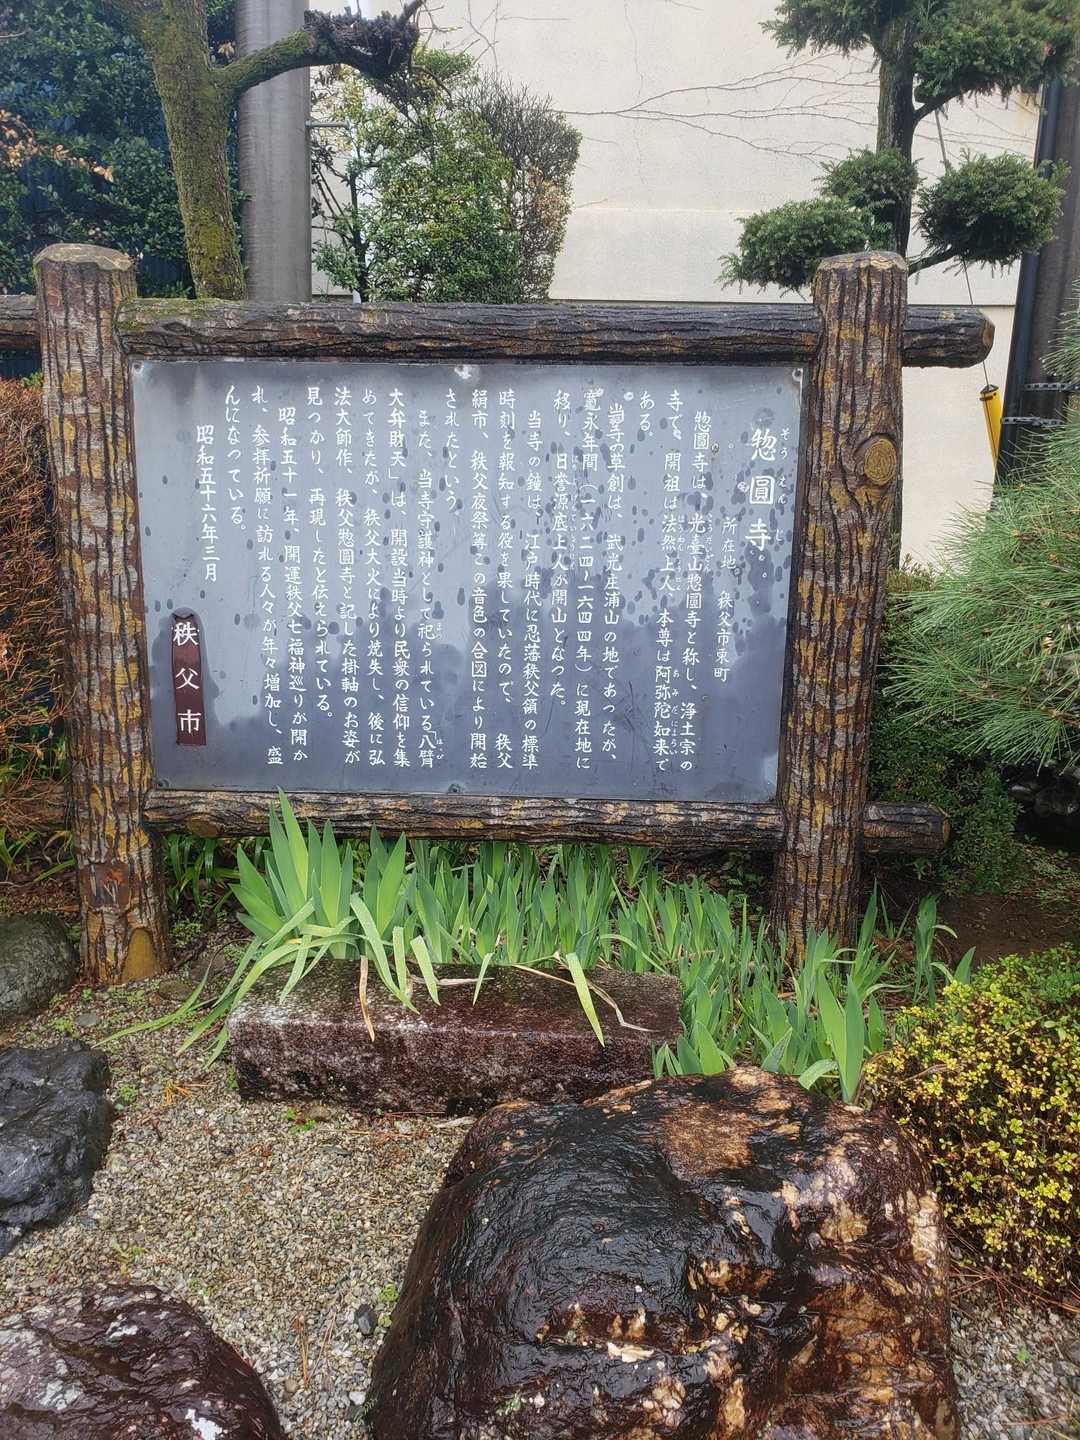 惣圓寺
そうえんじ
所在地 秩父市東町
惣圓寺は、光臺山惣圓寺と称し、浄土宗の
寺で、開祖は法然上人、本尊は阿弥陀如来で
ある。
当寺の草創は、武光庄浦山の地であったが、
寛永年間（一六二四～一六四四年）に現在地に
移り、日誉源底上人が開山となった。
当寺の鐘は、江戸時代に忍藩秩父領の標準
時刻を報知する役を果していたので、秩父
絹市、秩父夜祭等この音色の合図により開始
されたという。
また、当寺守護神として祀られている「八臂
大弁財天」は、開設当時より民衆の信仰を集
めてきたが、秩父大火により焼失し、後に弘
法大師作、秩父惣圓寺と記した掛軸のお姿が
見つかり、再現したと伝えられている。
昭和五十一年、開運秩父七福神巡りが開か
れ、参拝祈願に訪れる人々が年々増加し、盛
んになっている。
昭和五十六年三月
秩父市